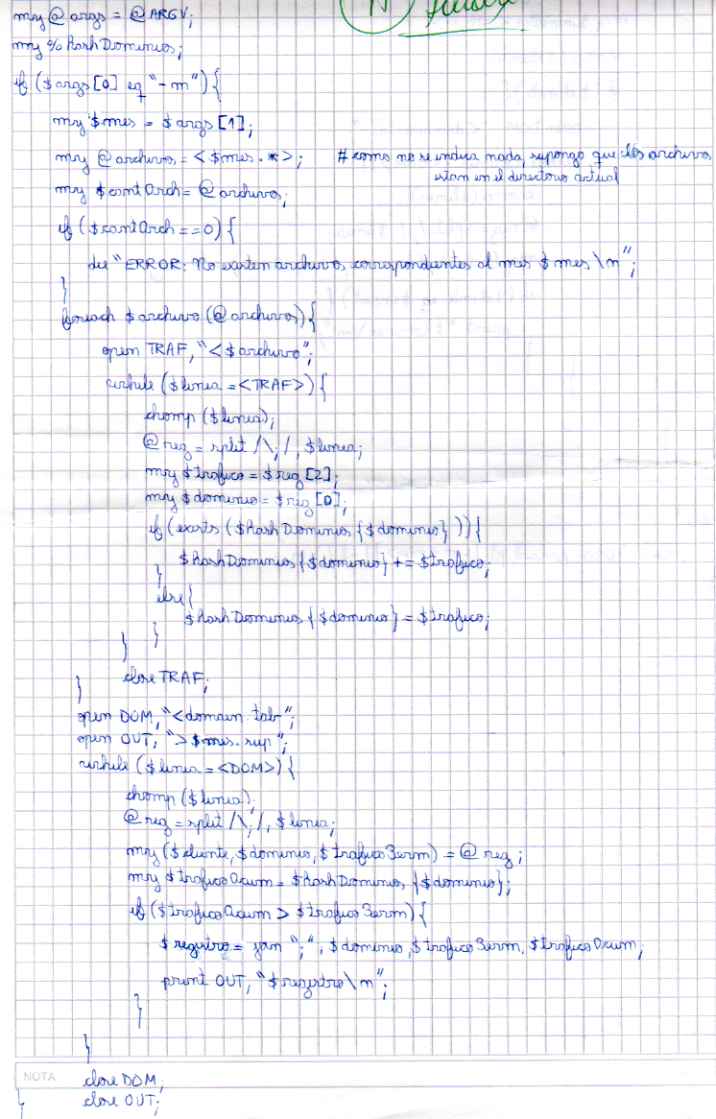 N
my @args = @ARGV;
my %hashDominios;
if ($args[0] eq "-m"){
my $mes = $args[1];
my @archivos = <$mes.*>; #como no se indica nada, supongo que los archivos
estan en el directorio actual
my $cantArch = @archivos;
if ($cantArch == 0){
die "ERROR: No existen archivos correspondientes al mes $mes\n";
}
foreach $archivo (@archivos){
open TRAF, "<$archivo";
while ($linea = <TRAF>){
chomp ($linea);
@reg = split /\;/, $linea;
my $trafico = $reg[2];
my $dominio = $reg[0];
if (exists ($hashDominios{$dominio})){
$hashDominios{$dominio} += $trafico;
}
else{
$hashDominios{$dominio} = $trafico;
}
}
close TRAF;
}
open DOM, "<domain.tab";
open OUT, ">$mes.sup";
while ($linea = <DOM>){
chomp ($linea);
@reg = split /\;/, $linea;
my ($cliente, $dominio, $traficoPerm) = @reg;
my $traficoAcum = $hashDominios{$dominio};
if ($traficoAcum > $traficoPerm){
$registro = join ";", $dominio, $traficoPerm, $traficoAcum;
print OUT, "$registro\n";
}
}
NOTA
close DOM;
close OUT;
}